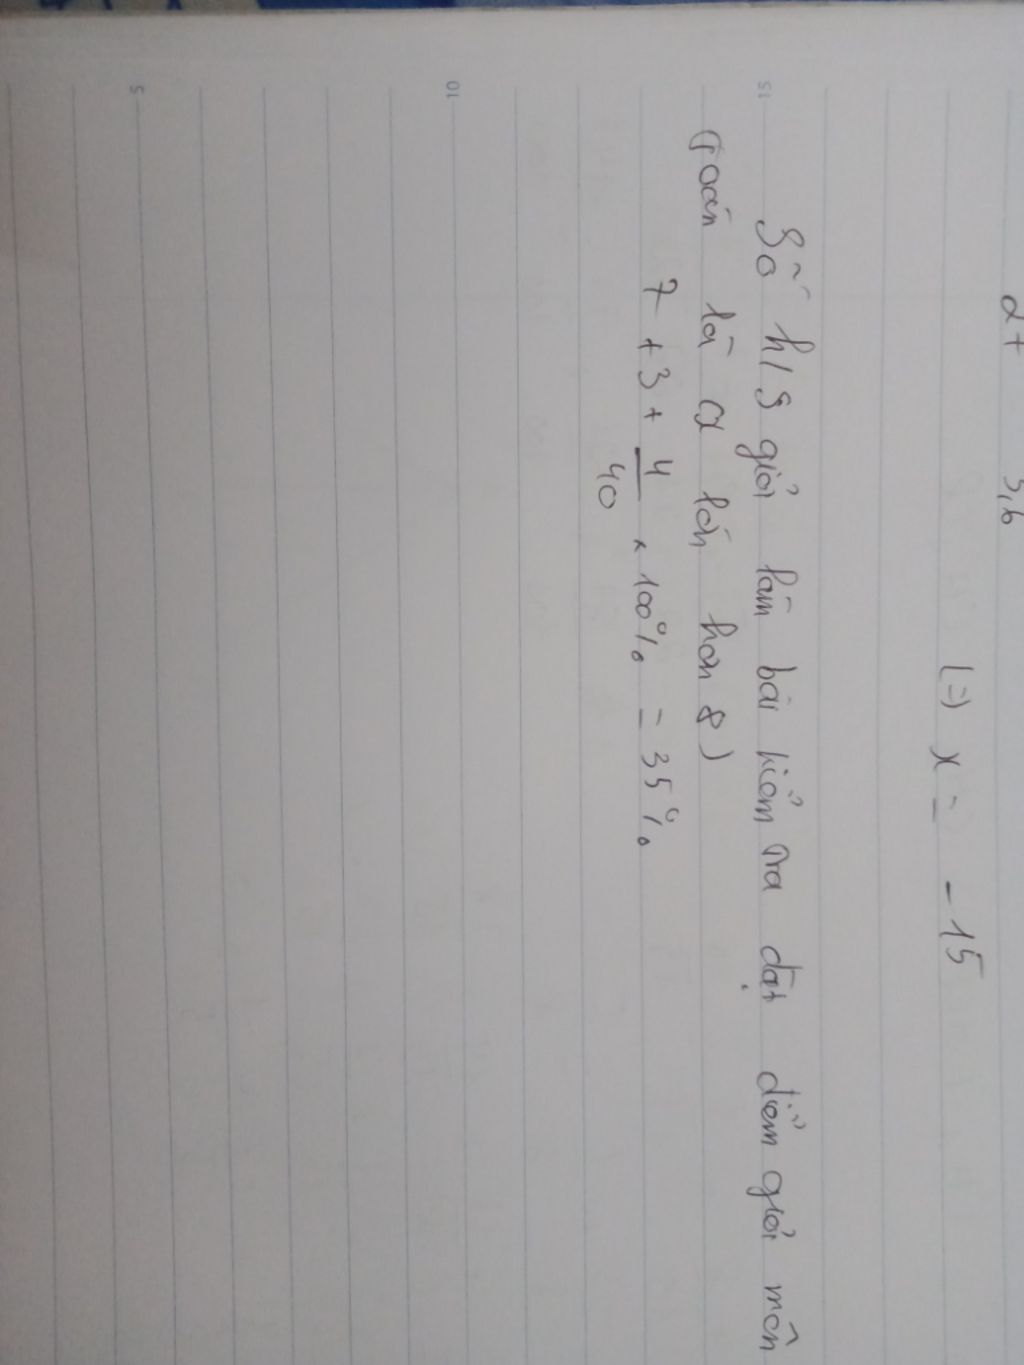 2+ 5,6
(=) x = -15
15
Số h/s giỏi làm bài kiểm tra đạt điểm giỏi môn
(Toán là lớn hơn 8)
7 + 3 + 4/40 × 100% = 35%
10
5